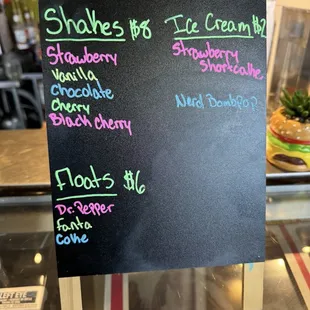 Shakes $8
Strawberry
Vanilla
Chocolate
Cherry
Black Cherry
Ice Cream $2
Strawberry
Shortcake
Nerd Bombpop
Floats $6
Dr. Pepper
Fanta
Coke
LEFT EYE